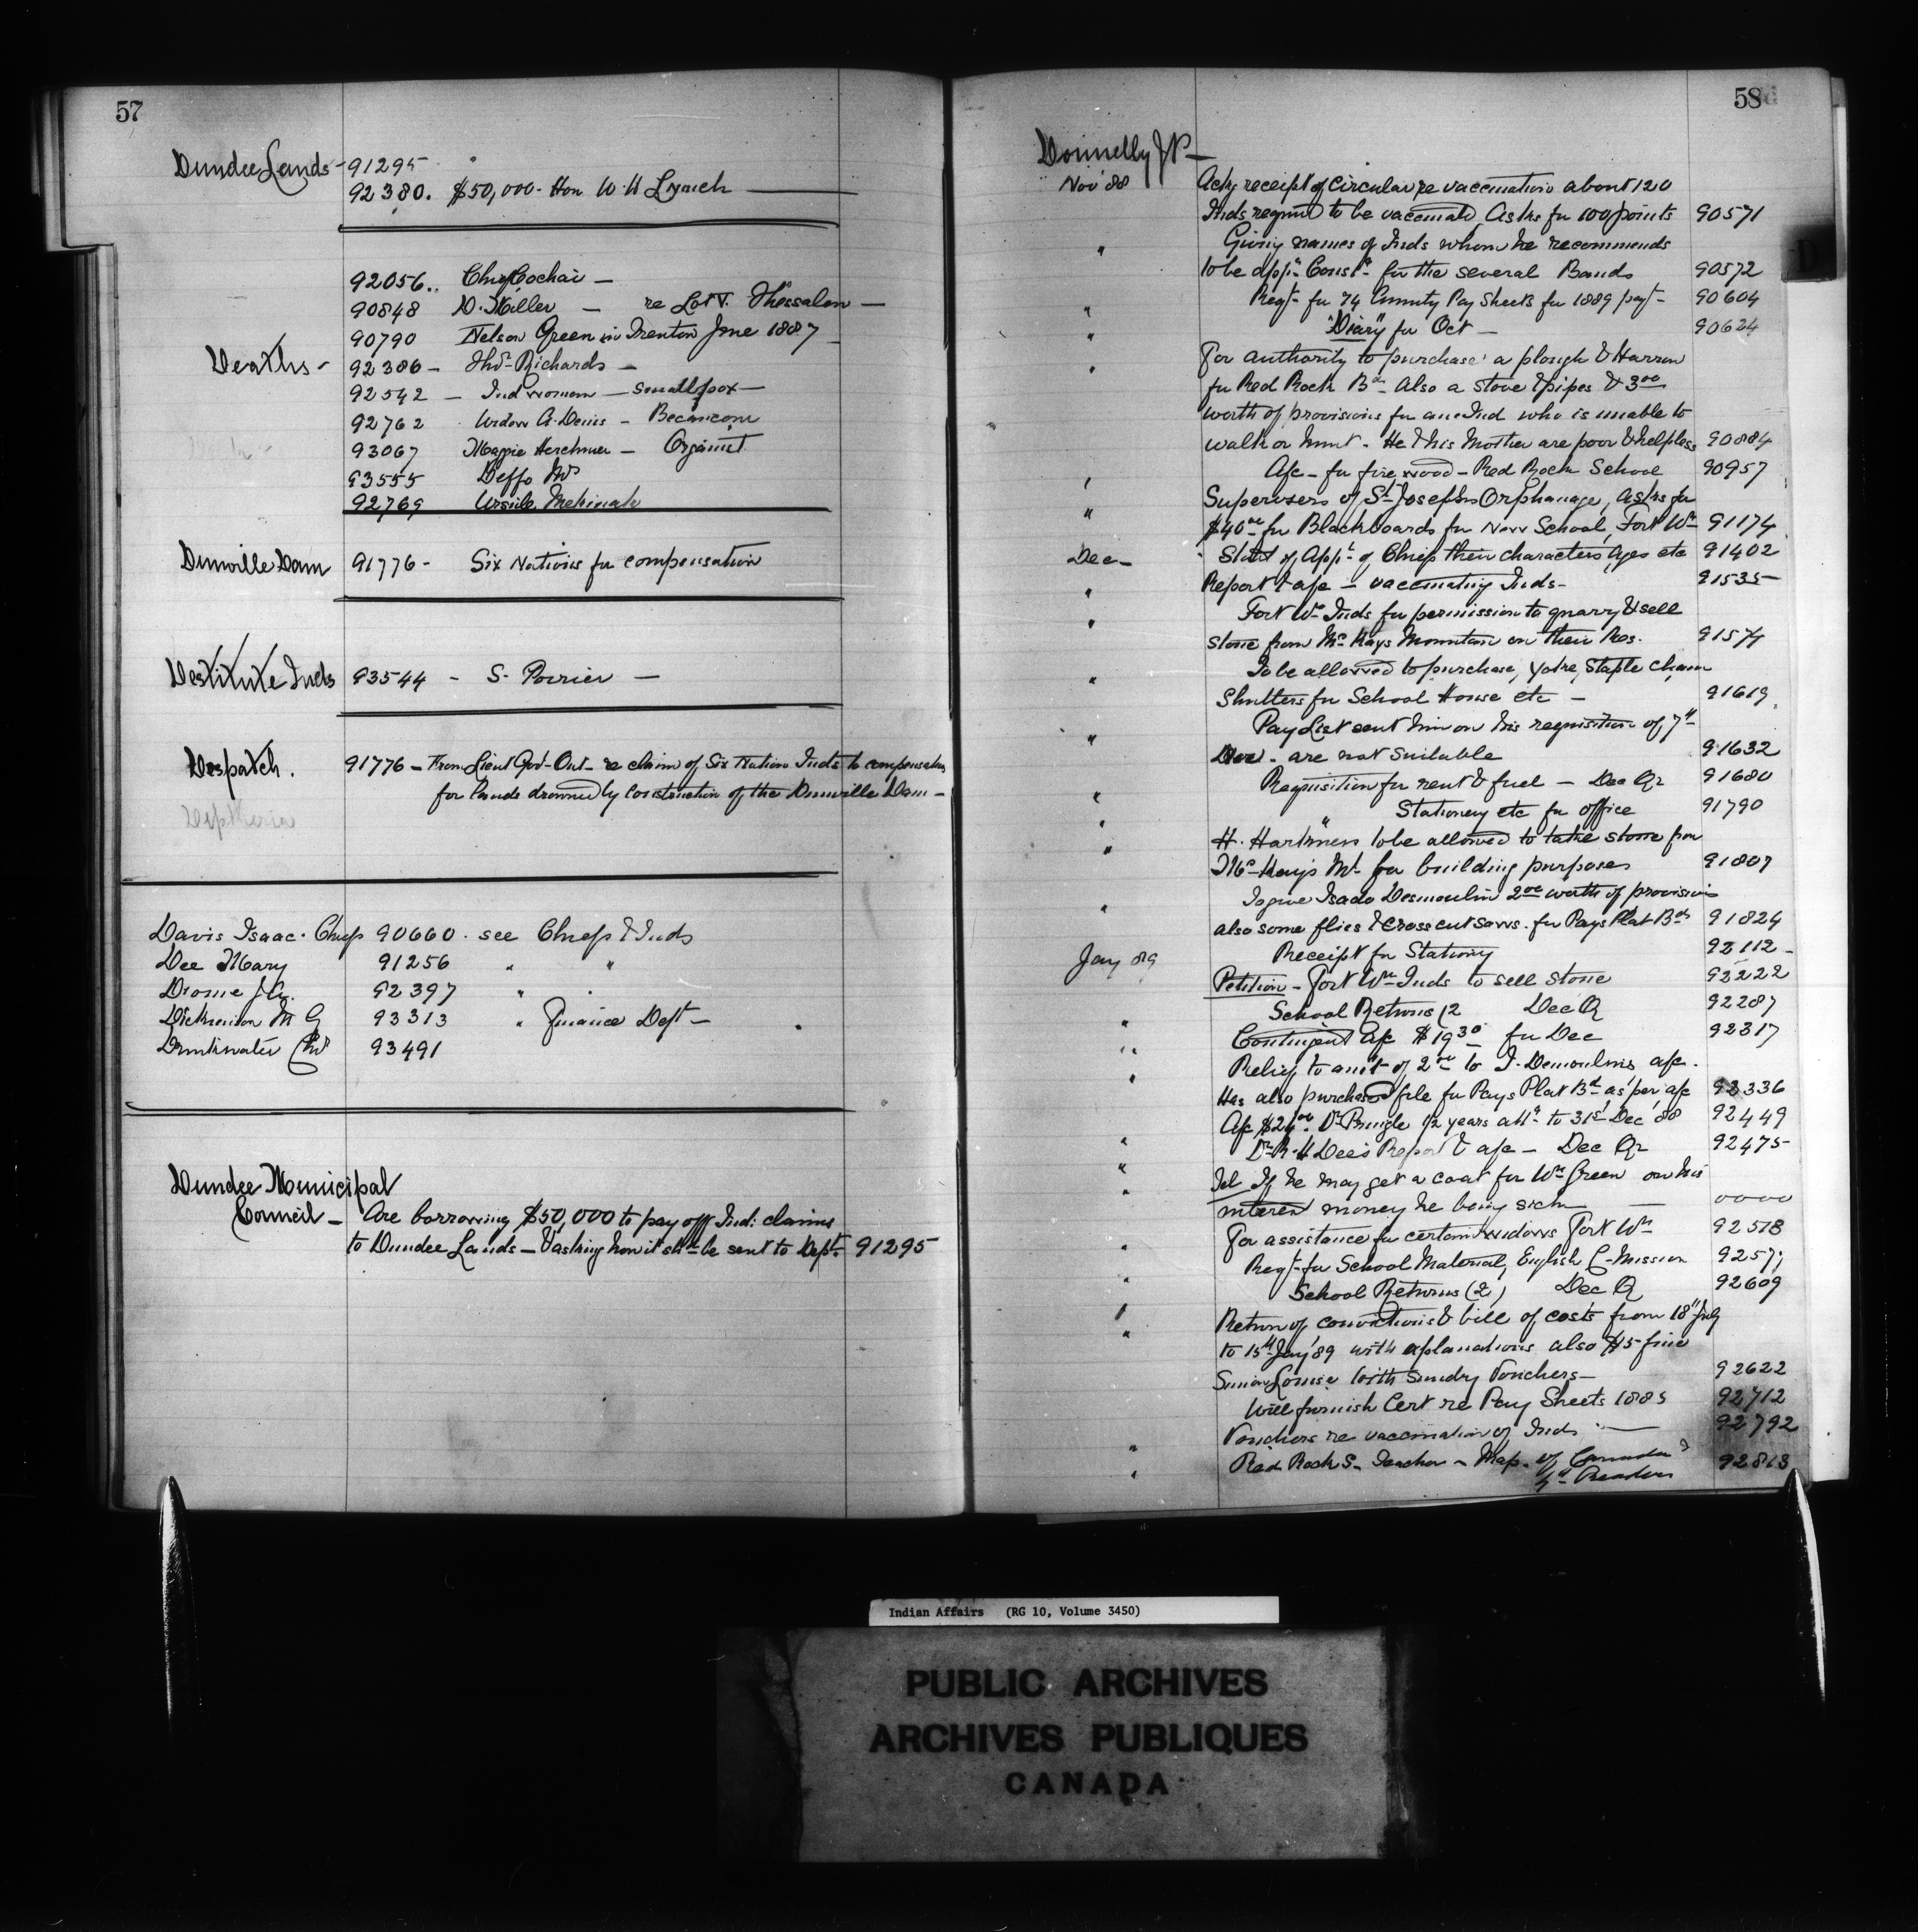 57
Dundee Lands - 91295
92380. $50,000- Hon W. H Lynch
92056.. Chief Cochai -
90848 D. Miller - re Lot V. Thessalon -
90790 Nelson Green in Trenton June 1887
Deaths - 92386 - Thos Richards -
92542 - Ind woman - Smallpox -
92762 Widow A. Denis - Becancour
93067 Maggie Herchmer -
93555 Deffo Mrs
92769 Ursule
Dunville Dam 91776 - Six Nations for compensation
Destitute Inds 93544 - S. Poirier -
Despatch. 91776 - From Lieut Gov- Ont- re claim of Six Nation Inds to compensation
for lands drowned by construction of the Dunville Dam -
Diptheria
Davis Isaac. Chief 90660. see Chiefs & Inds
Dee Mary 91256 " "
Drome J. A. 92397 "
Dickinson M G 93313 " Finance Dept -
Drinkwater Chs 93491
Dundee Municipal
Council - Are borrowing $50,000 to pay off Ind: claims
to Dundee Lands - & asking how it shd be sent to Dept. 91295
58
D
Donnelly J P -
Nov '88 Ackg receipt of Circular re vaccination about 120
Inds required to be vaccinated Asks for 100 points 90571
" Giving names of Inds whom he recommends
to be app'd Const's for the several Bands 90572
" Reqt- for 74 Annuity Pay Sheets for 1889 payt- 90604
" "Diary" for Oct - 90624
" For authority to purchase a plough & Harrow
for Red Rock Bd. Also a stove & pipes & 3 00
worth of provisions for an Ind who is unable to
walk or hunt. He & his Mother are poor & helpless 90884
" A/c - for fire wood - Red Rock School 90957
" Supervisors of St Josephs Orphanage, asks for
$40 00 for Blackboards for New School, Fort Wm 91174
Dec - Statt of Appt of Chiefs their characters, Ages etc 91402
" Report & a/c - vaccinating Inds - 91535
" Fort Wm Inds for permission to quarry & sell
stone from McKays Mountain on their Res. 91574
" To be allowed to purchase, Yoke, Staple Chain
Shutters for School House etc - 91619
" Pay List sent him on his requisition of 7th
Dec. are not suitable 91632
" Requisition for rent & fuel - Dec Qr 91680
" " Stationery etc for office 91790
" H. Hartness to be allowed to take stone from
McKay's Mt for building purposes 91807
" To give Isado Desmoulin 2 00 worth of provisions
also some files & Cross cut saws. for Pays Plat Bd 91824
Jay 89 Receipt for Stationy 92112 -
Petition - Fort Wm Inds to sell stone 92222
" School Returns (2 Dec Q 92287
" Contingent A/c $19 30 for Dec 92317
" Relief to amt of 2 00 to I. Demoulins a/c.
Has also purchased file for Pays Plat Bd as per a/c 92336
" A/c $24 00. Dr Pringle 1/2 years att to 31st Dec '88 92449
" Dr R. H Dee's Report & a/c - Dec Qr 92475
" Tel If he may get a coat for Wm Green on his
interest money he being sick - 0000
" For assistance for certain widows Fort Wm 92518
" Reqt- for School Material, English C- Mission 9257
" School Returns (2) Dec Q 92609
" Return of convictions & bill of costs from 18th July
to 15th Jay '89 with explanations also $5 fine
Simon Louise with Sundry Vouchers - 92622
Will furnish Cert re Pay Sheets 1885 92712
" Vouchers re vaccination of Inds - 92792
" Red Rock S- Teacher - Map. of Canada & 92813
4th Readers
Indian Affairs (RG 10, Volume 3450)
PUBLIC ARCHIVES
ARCHIVES PUBLIQUES
CANADA